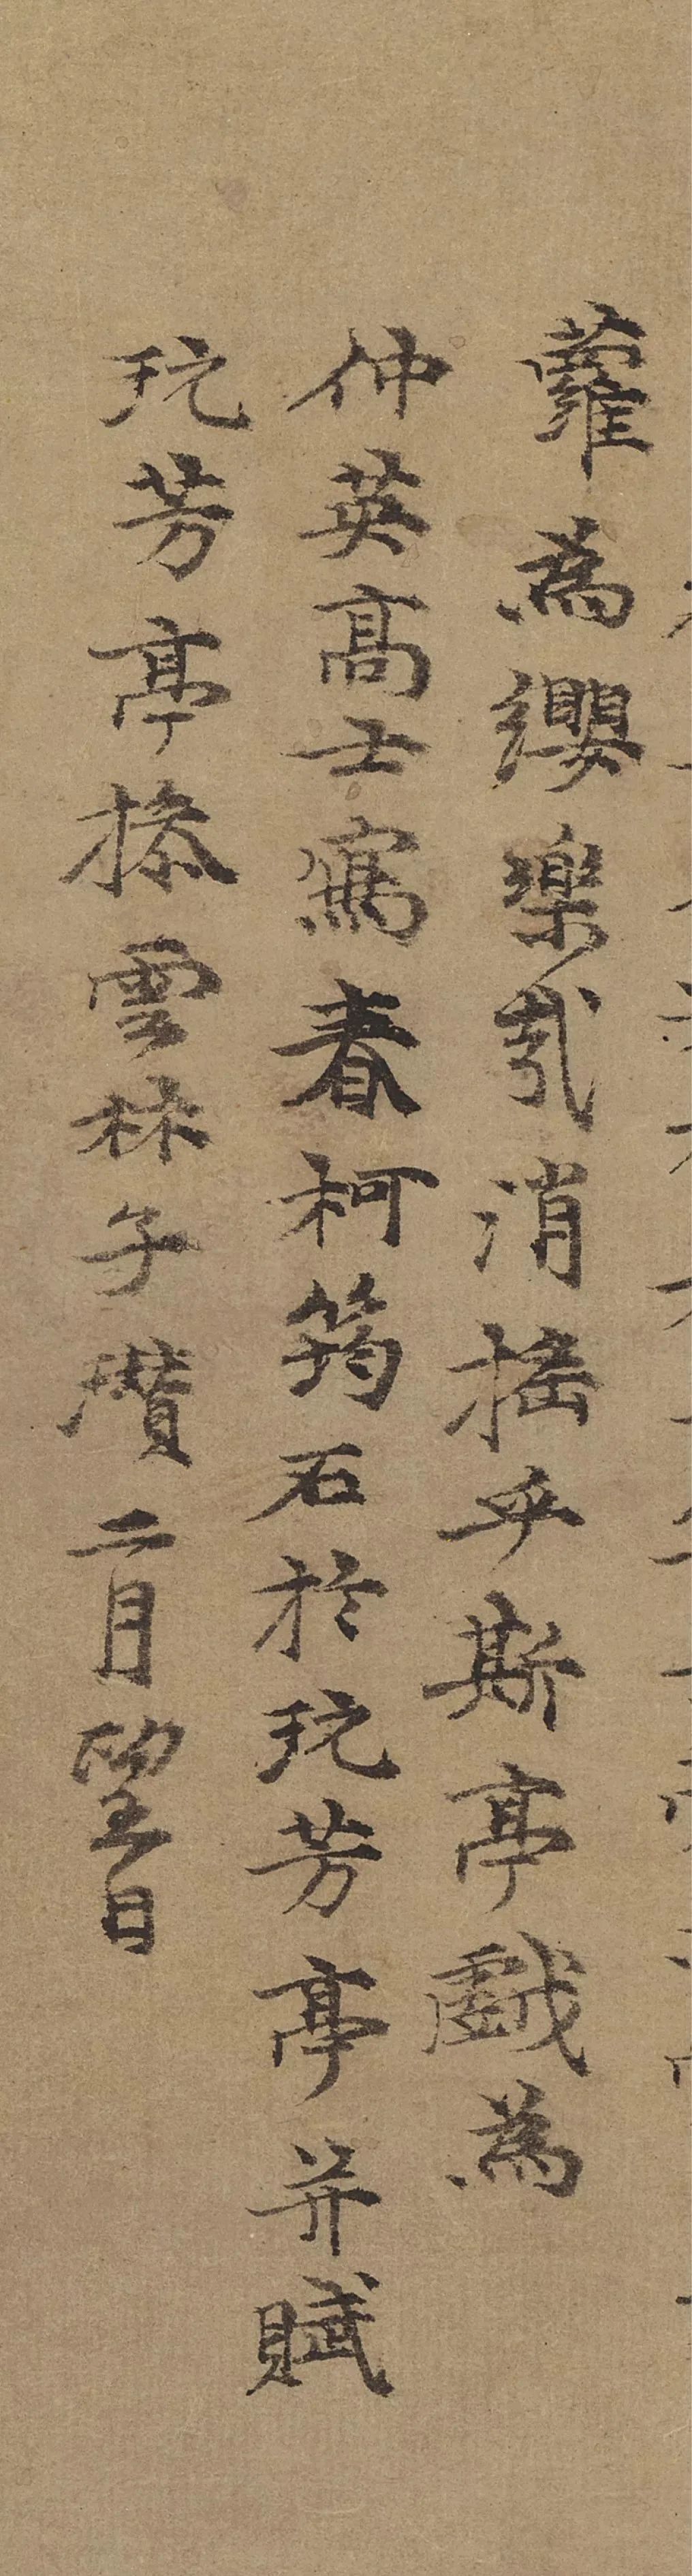 蘿為纓樂哉消搖乎斯亭戲為
仲英高士寫春柯筠石於玩芳亭并賦
玩芳亭掾雲林子瓚二月望日